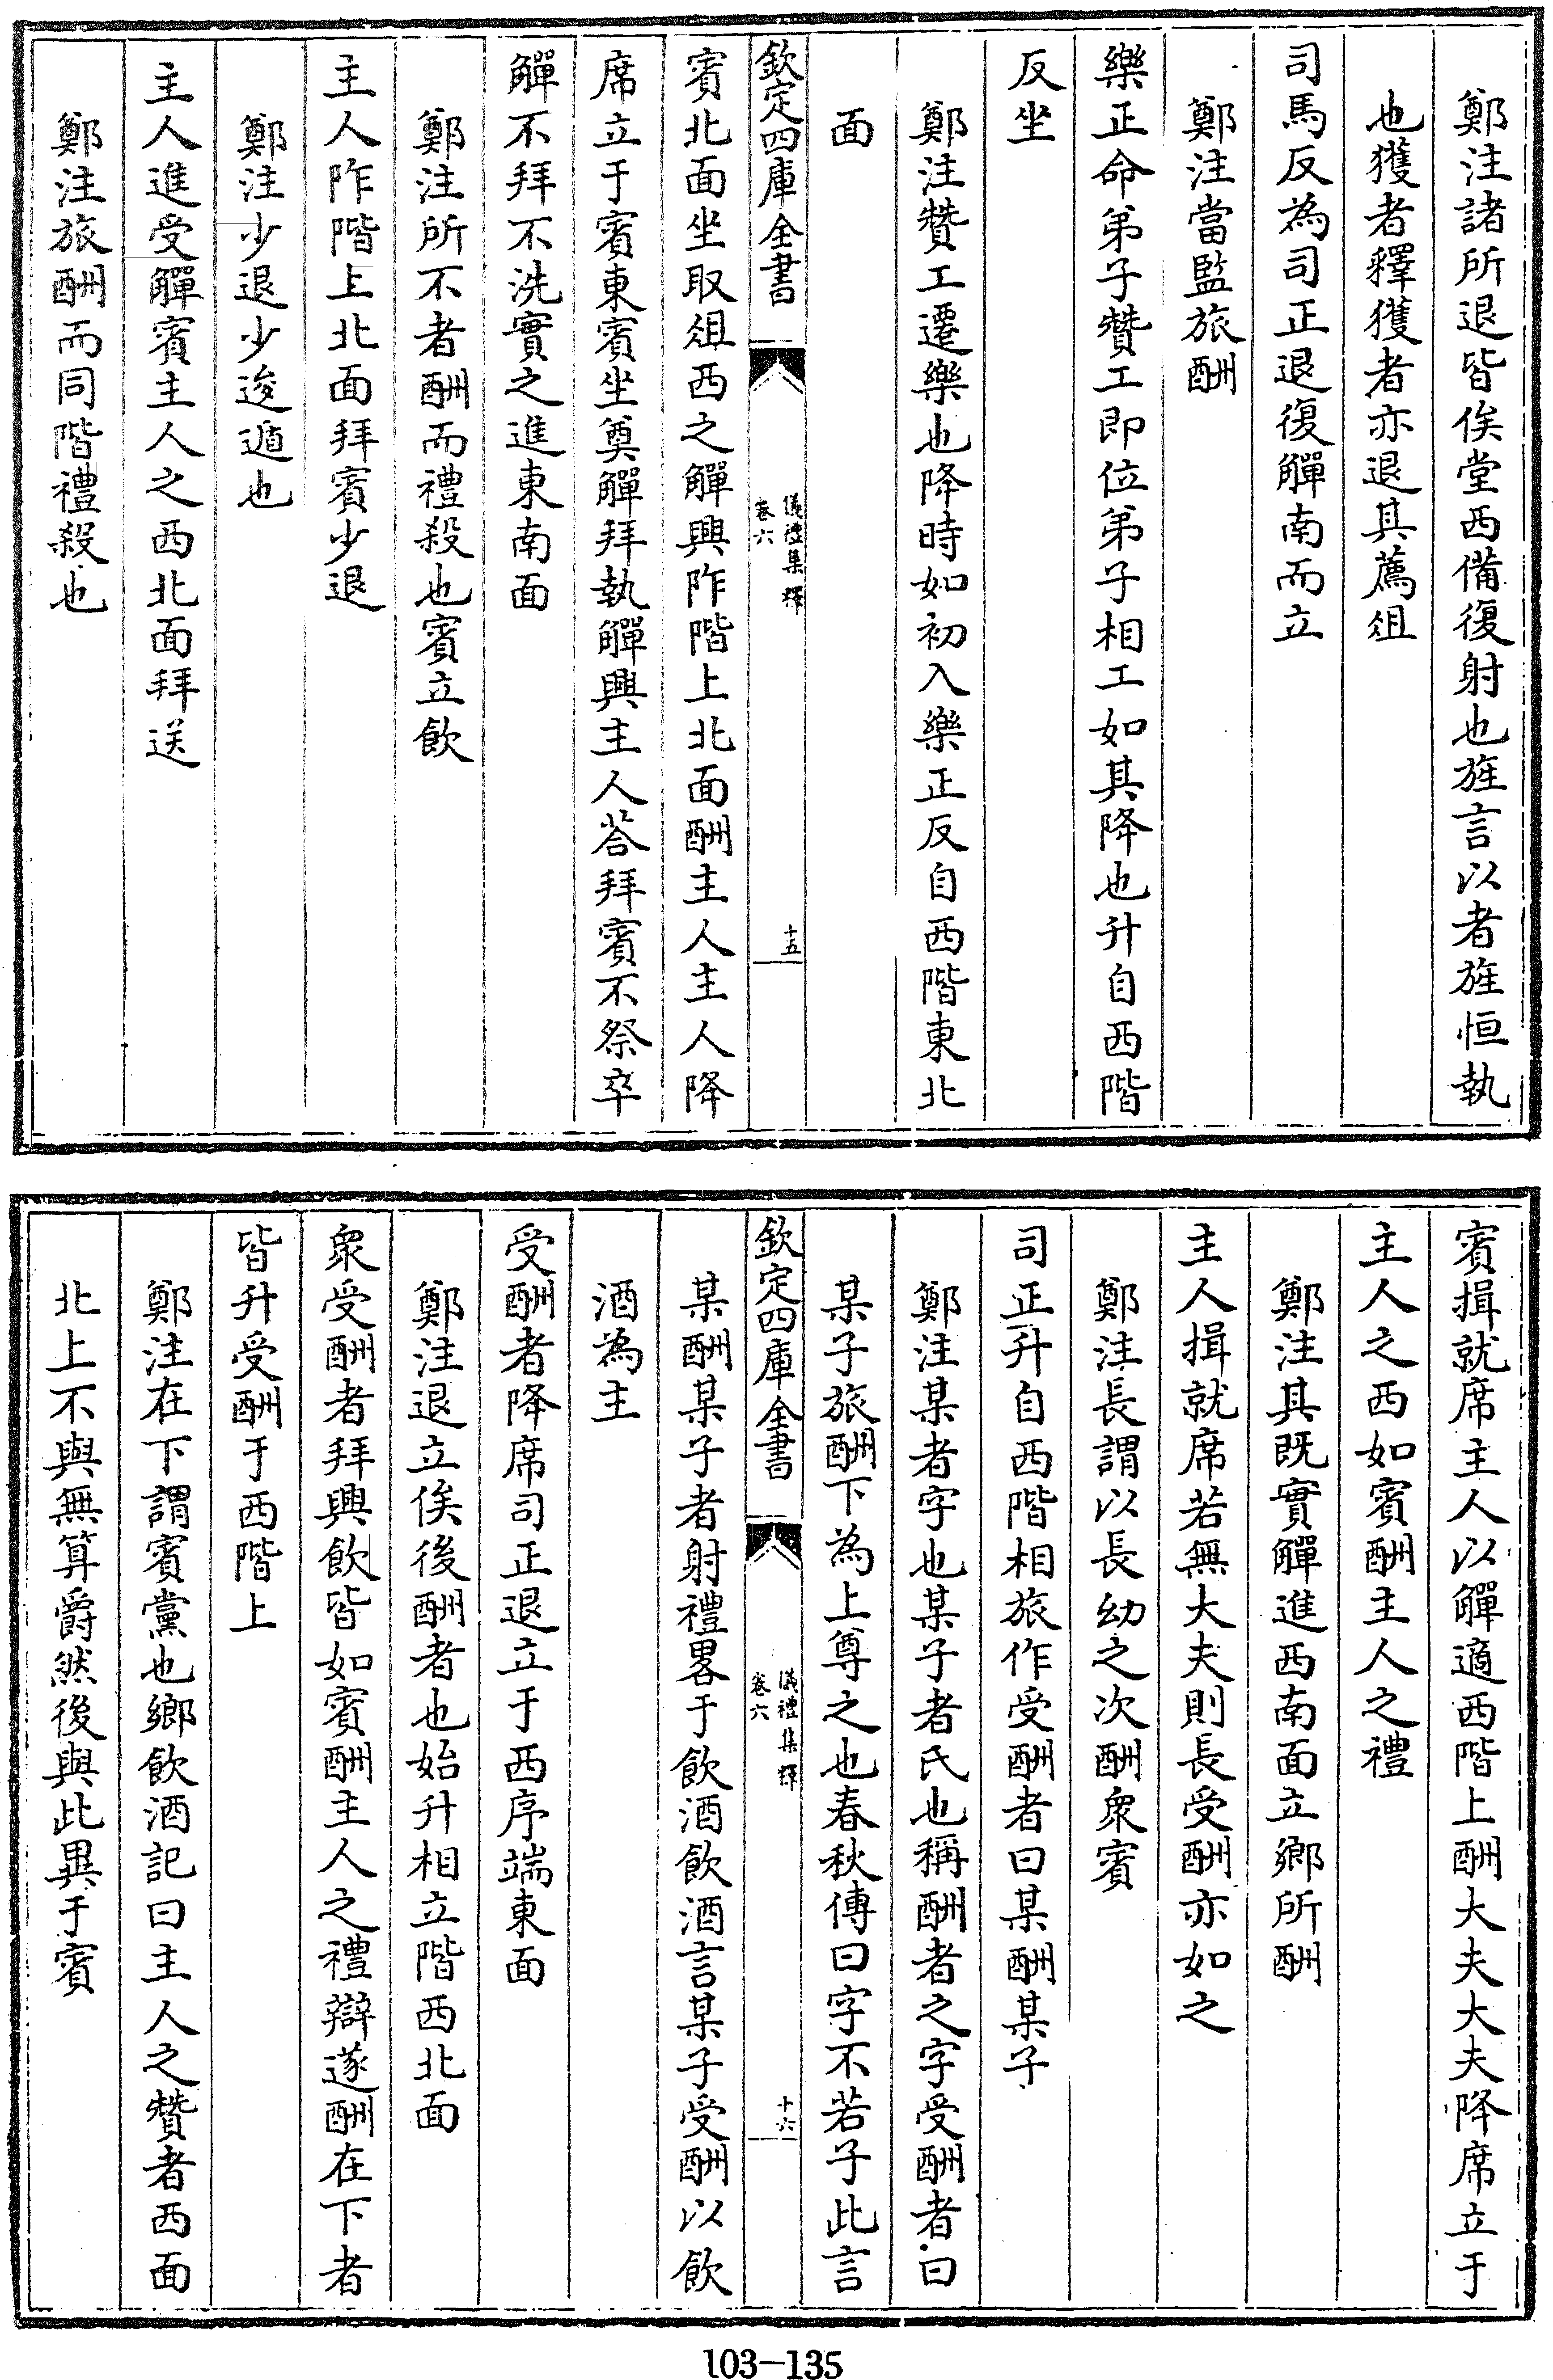 鄭注諸所退皆俟堂西備復射也旌言以者旌恒執
也獲者釋獲者亦退其薦俎
司馬反為司正退復觶南而立
鄭注當監旅酬
樂正命弟子贊工即位弟子相工如其降也升自西階
反坐
鄭注贊工遷樂也降時如初入樂正反自西階東北
面
欽定四庫全書
儀禮集釋
卷六
十五
賓北面坐取俎西之觶興阼階上北面酬主人主人降
席立于賓東賓坐奠觶拜執觶興主人荅拜賓不祭卒
觶不拜不洗實之進東南面
鄭注所不者酬而禮殺也賓立飲
主人阼階上北面拜賓少退
鄭注少退少逡遁也
主人進受觶賓主人之西北面拜送
鄭注旅酬而同階禮殺也
賓揖就席主人以觶適西階上酬大夫大夫降席立于
主人之西如賓酬主人之禮
鄭注其既實觶進西南面立鄉所酬
主人揖就席若無大夫則長受酬亦如之
鄭注長謂以長幼之次酬衆賓
司正升自西階相旅作受酬者曰某酬某子
鄭注某者字也某子者氏也稱酬者之字受酬者曰
某子旅酬下為上尊之也春秋傳曰字不若子此言
欽定四庫全書
儀禮集釋
卷六
十六
某酬某子者射禮畧于飲酒飲酒言某子受酬以飲
酒為主
受酬者降席司正退立于西序端東面
鄭注退立俟後酬者也始升相立階西北面
衆受酬者拜興飲皆如賓酬主人之禮辯遂酬在下者
皆升受酬于西階上
鄭注在下謂賓黨也鄉飲酒記曰主人之贊者西面
北上不與無算爵然後與此異于賓
103-135